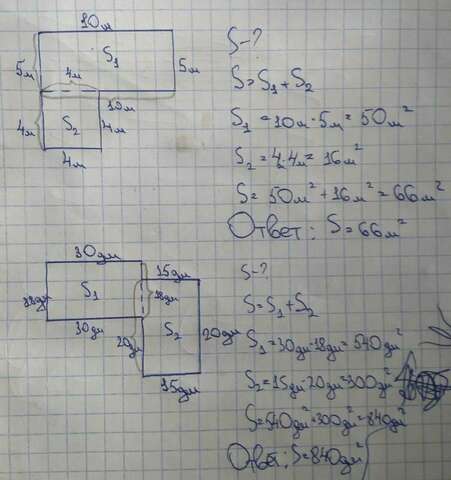 10м
S₁
5м
4м
5м
10м
4м
S₂
4м
4м
S-?
S = S₁ + S₂
S₁ = 10м · 5м = 50м²
S₂ = 4 · 4м = 16м²
S = 50м² + 16м² = 66м²
Ответ: S = 66м²
30дм
15дм
S₁
18дм
18дм
30дм
20дм
S₂
20дм
15дм
S-?
S = S₁ + S₂
S₁ = 30дм · 18дм = 540дм²
S₂ = 15дм · 20дм = 300дм²
S = 540дм² + 300дм² = 840дм²
Ответ: S = 840дм²